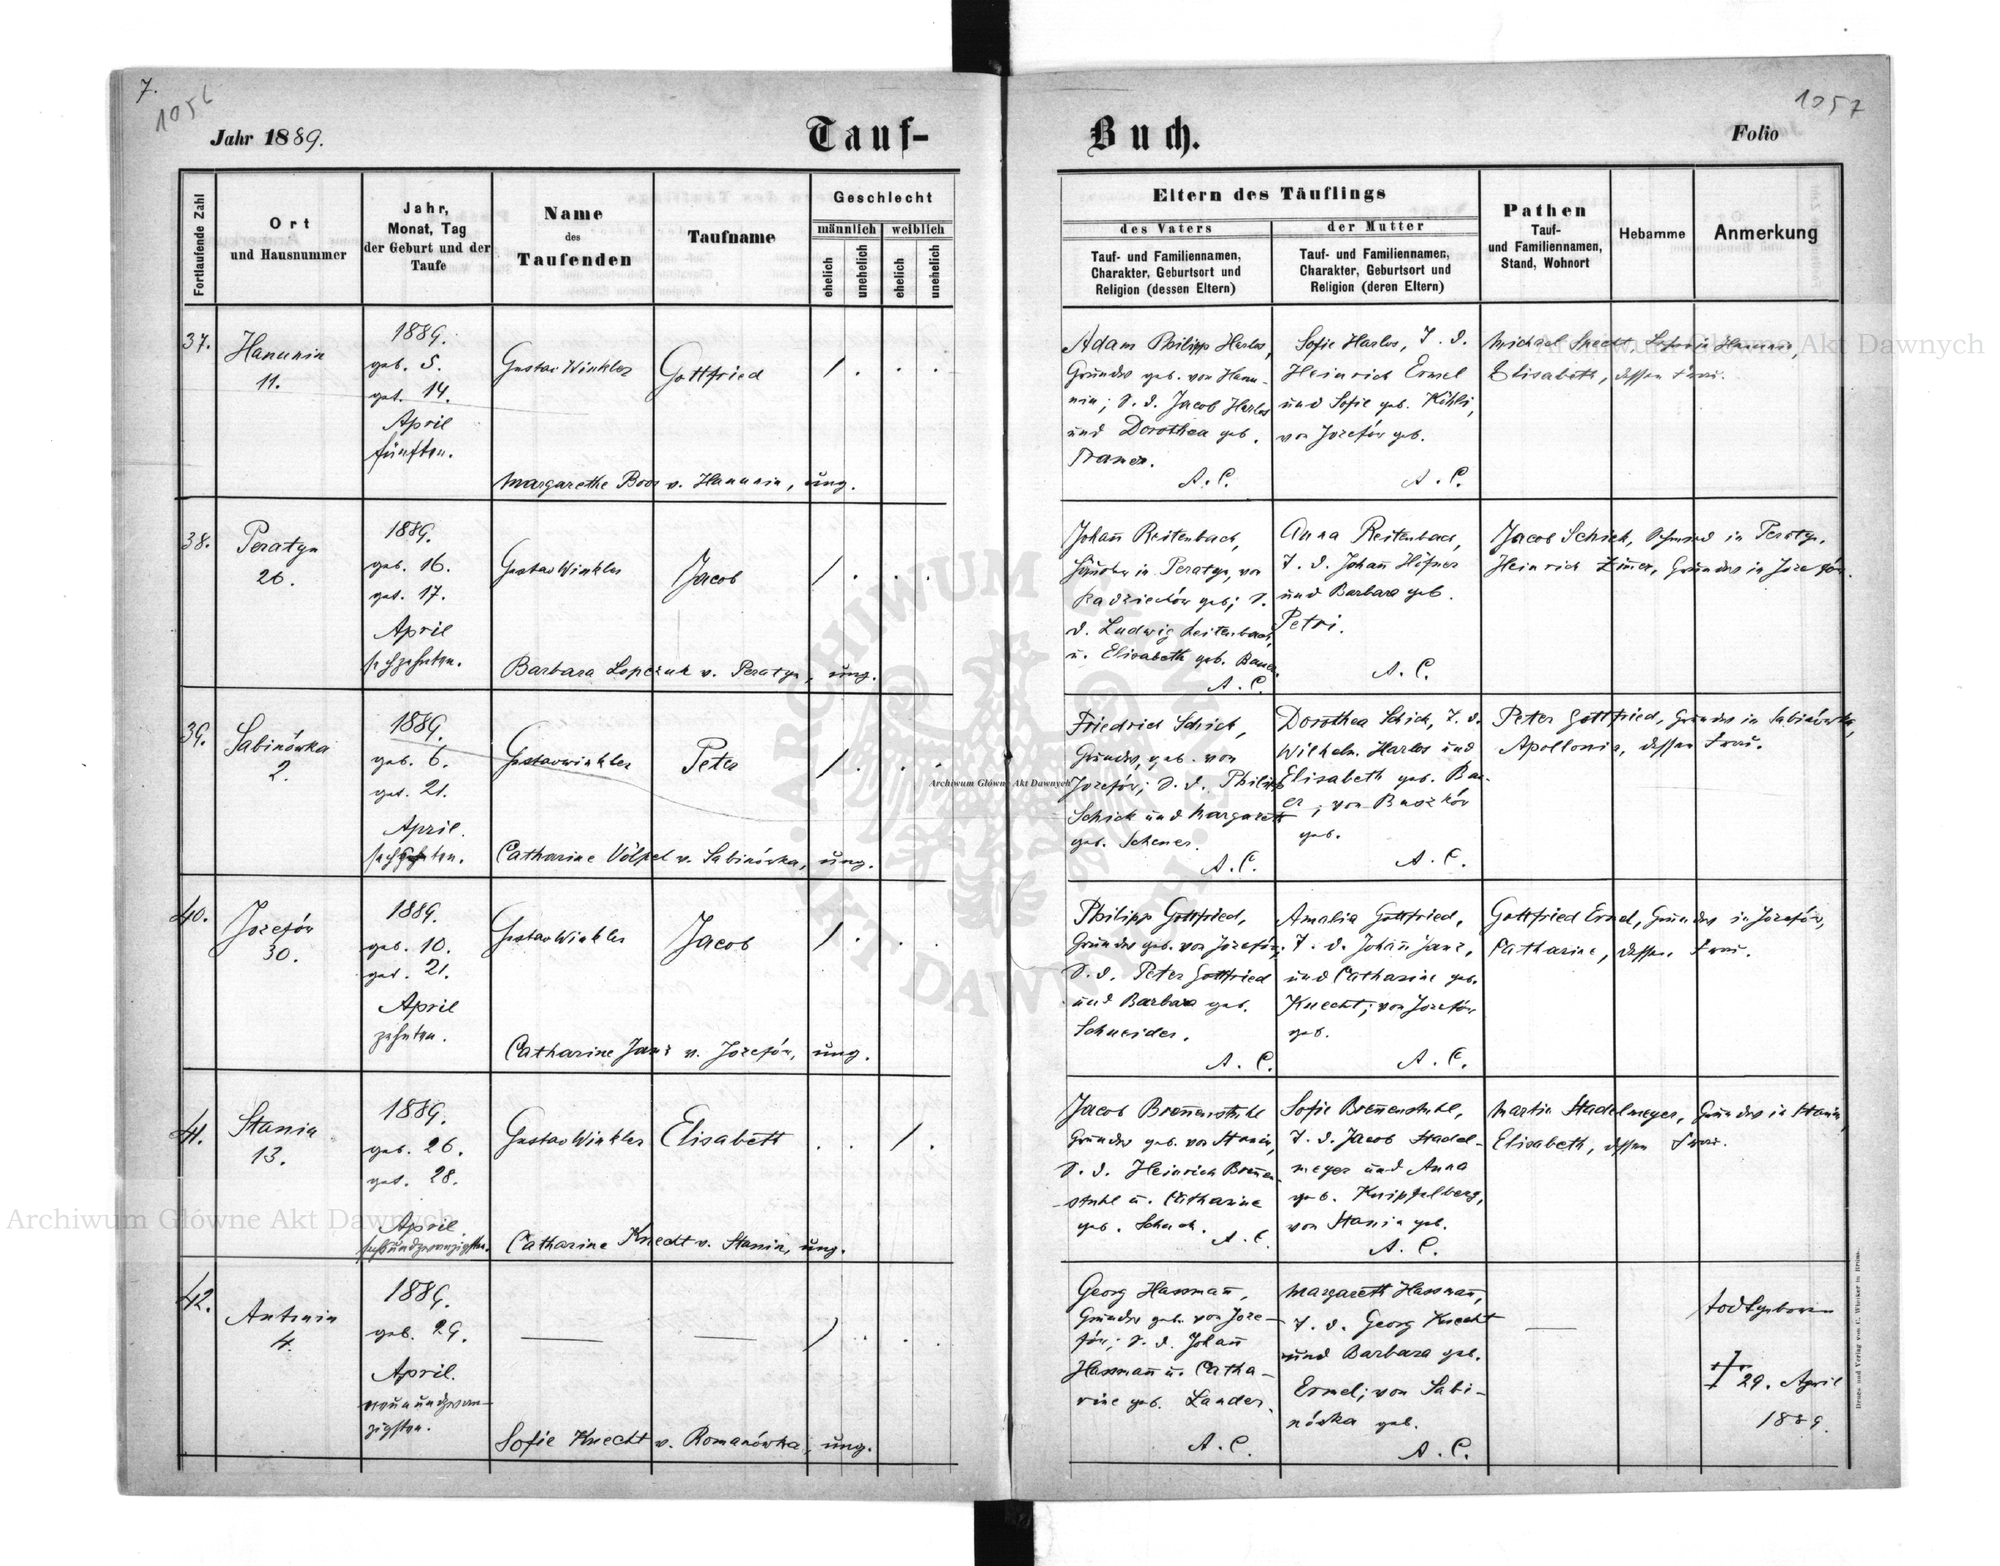 7.
1056
1057
Jahr 1889.
Tauf-
Buch.
Folio
Fortlaufende Zahl
Ort
und Hausnummer
Jahr,
Monat, Tag
der Geburt und der
Taufe
Name
des
Taufenden
Taufname
Geschlecht
männlich
weiblich
ehelich
unehelich
ehelich
unehelich
Eltern des Täuflings
des Vaters
der Mutter
Tauf- und Familiennamen,
Charakter, Geburtsort und
Religion (dessen Eltern)
Tauf- und Familiennamen,
Charakter, Geburtsort und
Religion (deren Eltern)
Pathen
Tauf-
und Familiennamen,
Stand, Wohnort
Hebamme
Anmerkung
37.
Hanunin
11.
1889.
geb. 5.
get. 14.
April
fünften.
Gustav Winkler
Gottfried
Margarethe Boos v. Hanunin, ung.
Adam Philipp Harlos,
Grundw. geb. von Hanu-
nin; S. d. Jacob Harlos
und Dorothea geb.
A. C.
Sofie Harlos, T. d.
Heinrich Ermel
und Sofie geb. Köhli,
von Jozefów geb.
A. C.
Michael Specht, in Hanunin,
Elisabeth, dessen Frau.
38.
Peratyn
26.
1889.
geb. 16.
get. 17.
April
sechzehnten.
Gustav Winkler
Jacob
Barbara Lopczuk v. Peratyn, ung.
Johann Reitenbach,
in Peratyn, von
Radziechów geb; S.
d. Ludwig Reitenbach,
u. Elisabeth geb. Bauer.
A. C.
Anna Reitenbach,
T. d. Johann Höfner
und Barbara geb.
Petri.
A. C.
Jacob Schick, Schmied in Peratyn,
Heinrich Zimer, Grundw. in Jozefów.
39.
Sabinówka
2.
1889.
geb. 6.
get. 21.
April.
sechsten.
Gustav Winkler
Peter
Catharine Völpel v. Sabinówka, ung.
Friedrich Schick,
Grundw., geb. von
Jozefów; S. d. Philipp
Schick und Margareth
geb. Scherer.
A. C.
Dorothea Schick, T. d.
Wilhelm Harlos und
Elisabeth geb. Bau-
er; von Buszków
geb.
A. C.
Peter Gottfried, Grundw. in Sabinówka,
Apollonia, dessen Frau.
40.
Jozefów
30.
1889.
geb. 10.
get. 21.
April
zehnten.
Gustav Winkler
Jacob
Catharine Janz v. Jozefów, ung.
Philipp Gottfried,
Grundw. geb. von Jozefów;
S. d. Peter Gottfried
und Barbara geb.
Schneider.
A. C.
Amalia Gottfried,
T. d. Johann Janz,
und Catharine geb.
Knecht; von Jozefów
geb.
A. C.
Gottfried Ermel, Grundw. in Jozefów,
Catharine, dessen Frau.
41.
Stanin
13.
1889.
geb. 26.
get. 28.
April
sechsundzwanzigsten.
Gustav Winkler
Elisabeth
Catharine Knecht v. Stanin, ung.
Jacob Brennenstuhl
Grundw. geb. von Stanin,
S. d. Heinrich Brennen-
stuhl u. Catharine
geb. Schuch.
A. C.
Sofie Brennenstuhl,
T. d. Jacob Stadel-
meyer und Anna
geb. Knipfelberg,
von Stanin geb.
A. C.
Martin Stadelmeyer, Grundw. in Stanin,
Elisabeth, dessen Frau.
42.
Antonin
4.
1889.
geb. 29.
April.
neunundzwan-
zigsten.
Sofie Knecht v. Romanówka, ung.
Georg Hassmann,
Grundw. geb. von Joze-
fów; S. d. Johann
Hassmann u. Catha-
rine geb. Lander.
A. C.
Margareth Hassmann,
T. d. Georg Knecht
und Barbara geb.
Ermel; von Sabi-
nówka geb.
A. C.
todtgeboren
29. April
1889.
Archiwum Główne Akt Dawnych
Archiwum Główne Akt Dawnych
Archiwum Główne Akt Dawnych
ARCHIWUM
AKT DAWNYCH